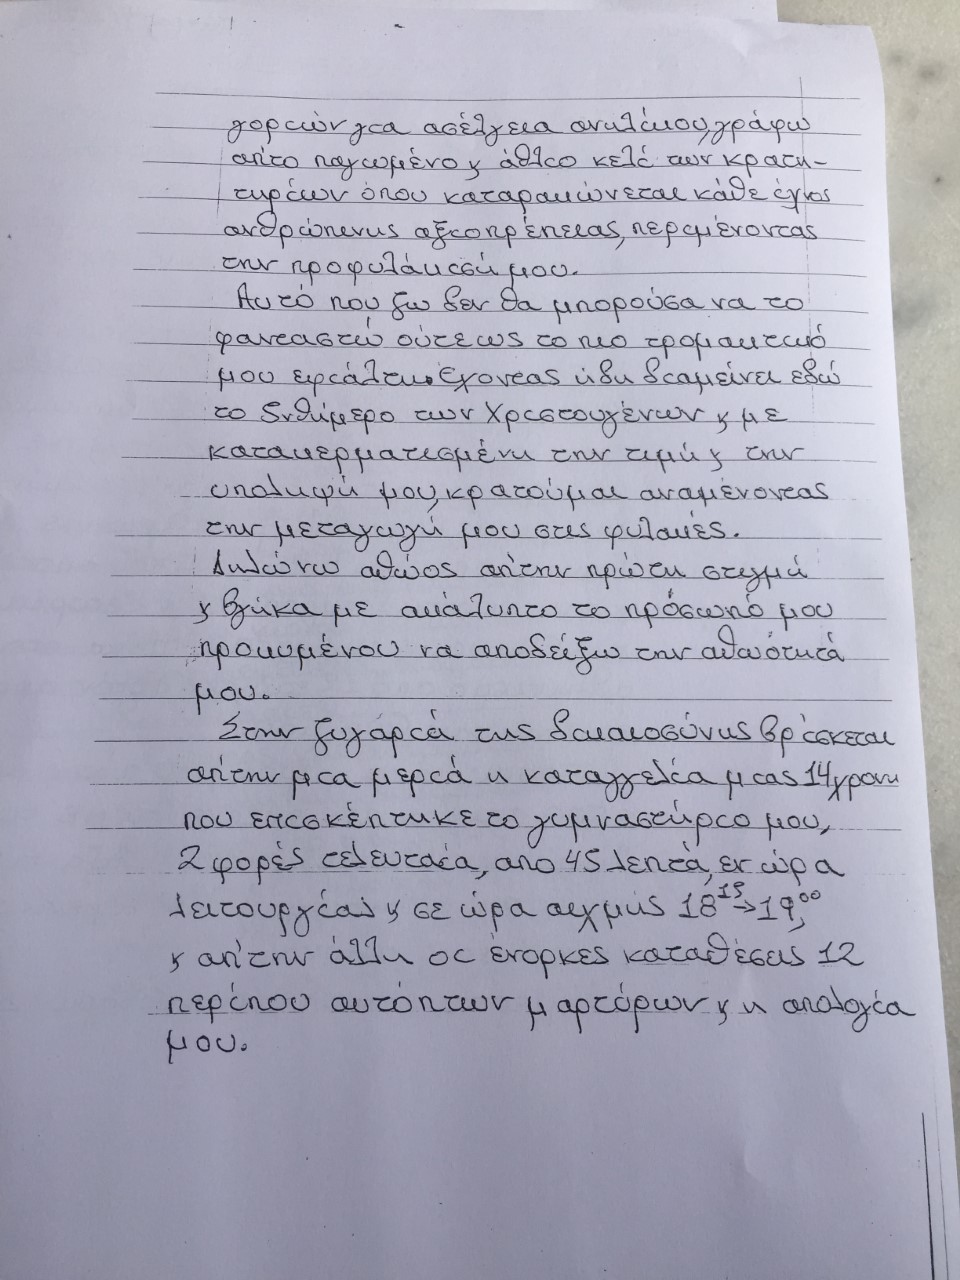 γοριών για ασέλγεια ανηλίκου, γράφω
απ'το παγωμένο ϗ άθλιο κελί των κρατη-
τηρίων όπου καταρακώνεται κάθε έγνος
ανθρώπινης αξιοπρέπειας, περιμένοντας
την προφυλάκισή μου.
Αυτό που ζω δεν θα μπορούσα να το
φανταστώ ούτε ως το πιο τρομακτικό
μου εφιάλτη. Έχοντας ήδη διαμείνει εδώ
το 5νθήμερο των Χριστουγένων ϗ με
κατακερματισμένη την τιμή ϗ την
υποληψή μου, κρατούμαι αναμένοντας
την μεταγωγή μου στις φυλακές.
Δηλώνω αθώος απ'την πρώτη στιγμή
ϗ βγήκα με ακάλυπτο το πρόσωπό μου
προκυμένου να αποδείξω την αθωότητά
μου.
Στην ζυγαρζά της δικαιοσύνης βρίσκεται
απ'την μια μεριά η καταγγελία μιας 14χρονη
που επισκέπτηκε το γυμναστήριο μου,
2 φορές τελευταία, απο 45 λεπτά, εν ώρα
λειτουργίας ϗ σε ώρα αιχμής 18¹⁵→19,⁰⁰
ϗ απ'την άλλη οι ένορκες καταθέσεις 12
περίπου αυτόπτων μαρτύρων ϗ η απολογία
μου.